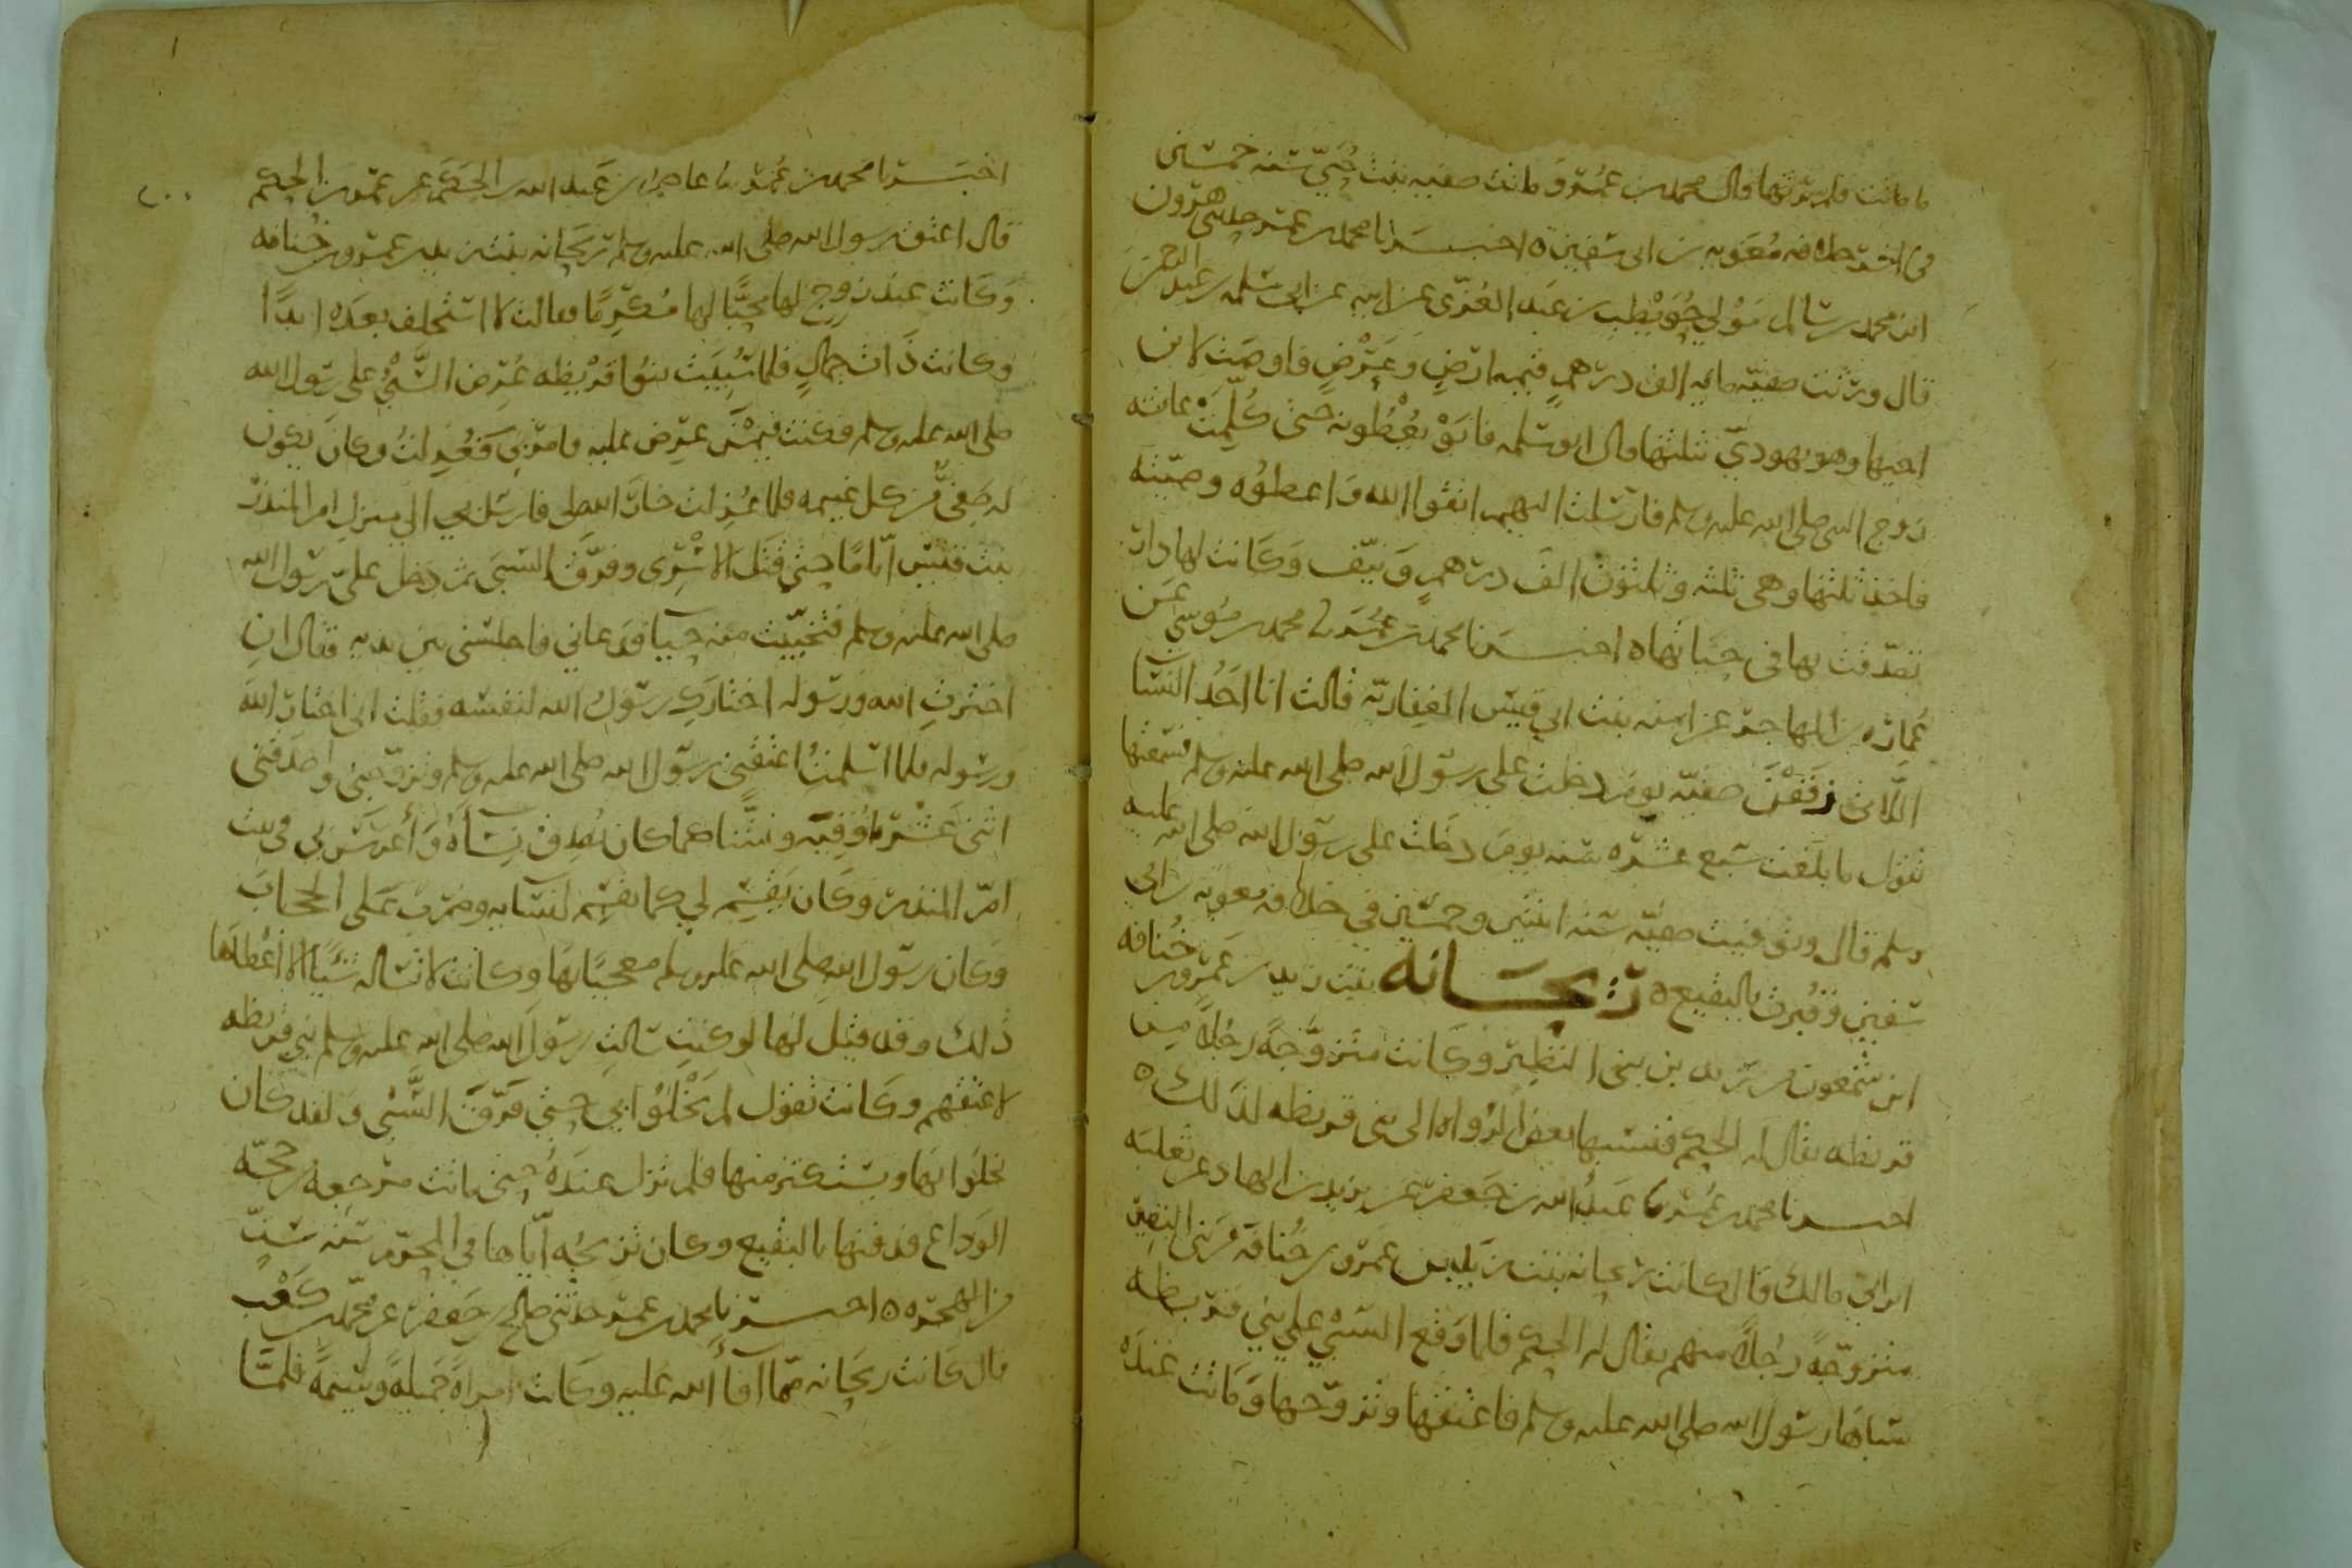 ما ماتت ولم يرثها قال محمد بن عمر وماتت صفيه بنت حيي سنه خمسين
في خلافه معويه بن ابى سفين ه اخبرنا محمد بن عمر حدثني هرون
ابن محمد بن سالم مولى حويطب بن عبد العزى عن ابيه عن ابي سلمه بن عبد الرحمن
قال ورثت صفيه مايه الف درهم قيمه ارض وعرض فاوصت لابن
اختها وهو يهودي ثلثها قال ابو سلمه فابو يعطونه حتى كلمت عائشه
زوج النبى صلى الله عليه وسلم فارسلت اليهم اتقوا الله واعطوه وصيته
فاخذ ثلثها وهى ثلثه وثلثون الف درهم ونيف وكانت لها دار
تصدقت بها في حياتها ه اخبرنا محمد بن عمر نا محمد بن موسى عن
عماره بن المهاجر عن امنه بنت ابي قيس الغفاريه قالت انا احد النسا
اللاتى زففن صفيه يوم دخلت على رسول الله صلى الله عليه وسلم فسمعتها
تقول ما بلغت سبع عشره سنه يوم دخلت على رسول الله صلى الله عليه
وسلم قال وتوفيت صفيه سنه اثنتين وخمسين في خلافه معويه بن ابي
سفين وقبرت بالبقيع ه ريحانه بنت زيد بن عمرو بن خنافه
ابن شمعون بن زيد من بنى النضير وكانت متزوجة رجلا من
قريظه يقال له الحكم فنسبها بعض الرواه الى بنى قريظه لذلك ه
اخبرنا محمد بن عمر نا عبد الله بن جعفر عن يزيد بن الهاد عن ثعلبه
ابن ابي مالك قال كانت ريحانه بنت زيد بن عمرو بن خنافه من بنى النضير
متزوجة رجلا منهم يقال له الحكم فلما وقع السبي على بني قريظه
سباها رسول الله صلى الله عليه وسلم فاعتقها وتزوجها وماتت عنده
اخبرنا محمد بن عمر نا عاصم بن عبد الله بن الحكم عن عمر بن الحكم
قال اعتق رسول الله صلى الله عليه وسلم ريحانه بنت زيد بن عمرو بن خنافه
وكانت عند زوج لها محبا لها مكرما فقالت لا استخلف بعده ابدا
وكانت ذات جمال فلما سبيت بنو قريظه عرض السبي على رسول الله
صلى الله عليه وسلم فكنت فيمن عرض عليه فامر بي فعزلت وكان يكون
له صفي من كل غنيمه فلما عزلت خار الله لي فارسل بي الى منزل ام المنذر
بنت قيس اياما حتى قتل الاسرى وفرق السبى ثم دخل علي رسول الله
صلى الله عليه وسلم فتحييت منه حيا فدعاني فاجلسنى بين يديه فقال ان
اخترت الله ورسوله اختارك رسول الله لنفسه فقلت انى اختار الله
ورسوله فلما اسلمت اعتقنى رسول الله صلى الله عليه وسلم وتزوجني واصدقنى
اثنى عشر اوقيه ونشا كما كان يصدق نساه واعرس بي في بيت
ام المنذر وكان يقسم لي كما يقسم لنسايه وضرب على الحجاب
وكان رسول الله صلى الله عليه وسلم معجبا بها وكانت لا تساله شيا الا اعطاها
ذلك وقد قيل لها لو كنت سالت رسول الله صلى الله عليه وسلم بني قريظه
لاعتقهم وكانت تقول لم يخلوا بي حتى فرق السبي ولقد كان
يخلوا بها ويستكثر منها فلم تزل عنده حتى ماتت مرجعه من حجه
الوداع فدفنها بالبقيع وكان تزويجه اياها في المحرم سنه ست
من الهجره ه اخبرنا محمد بن عمر حدثني صالح بن جعفر عن محمد بن كعب
قال كانت ريحانه مما افا الله عليه وكانت امراة جميلة وسيمة فلما